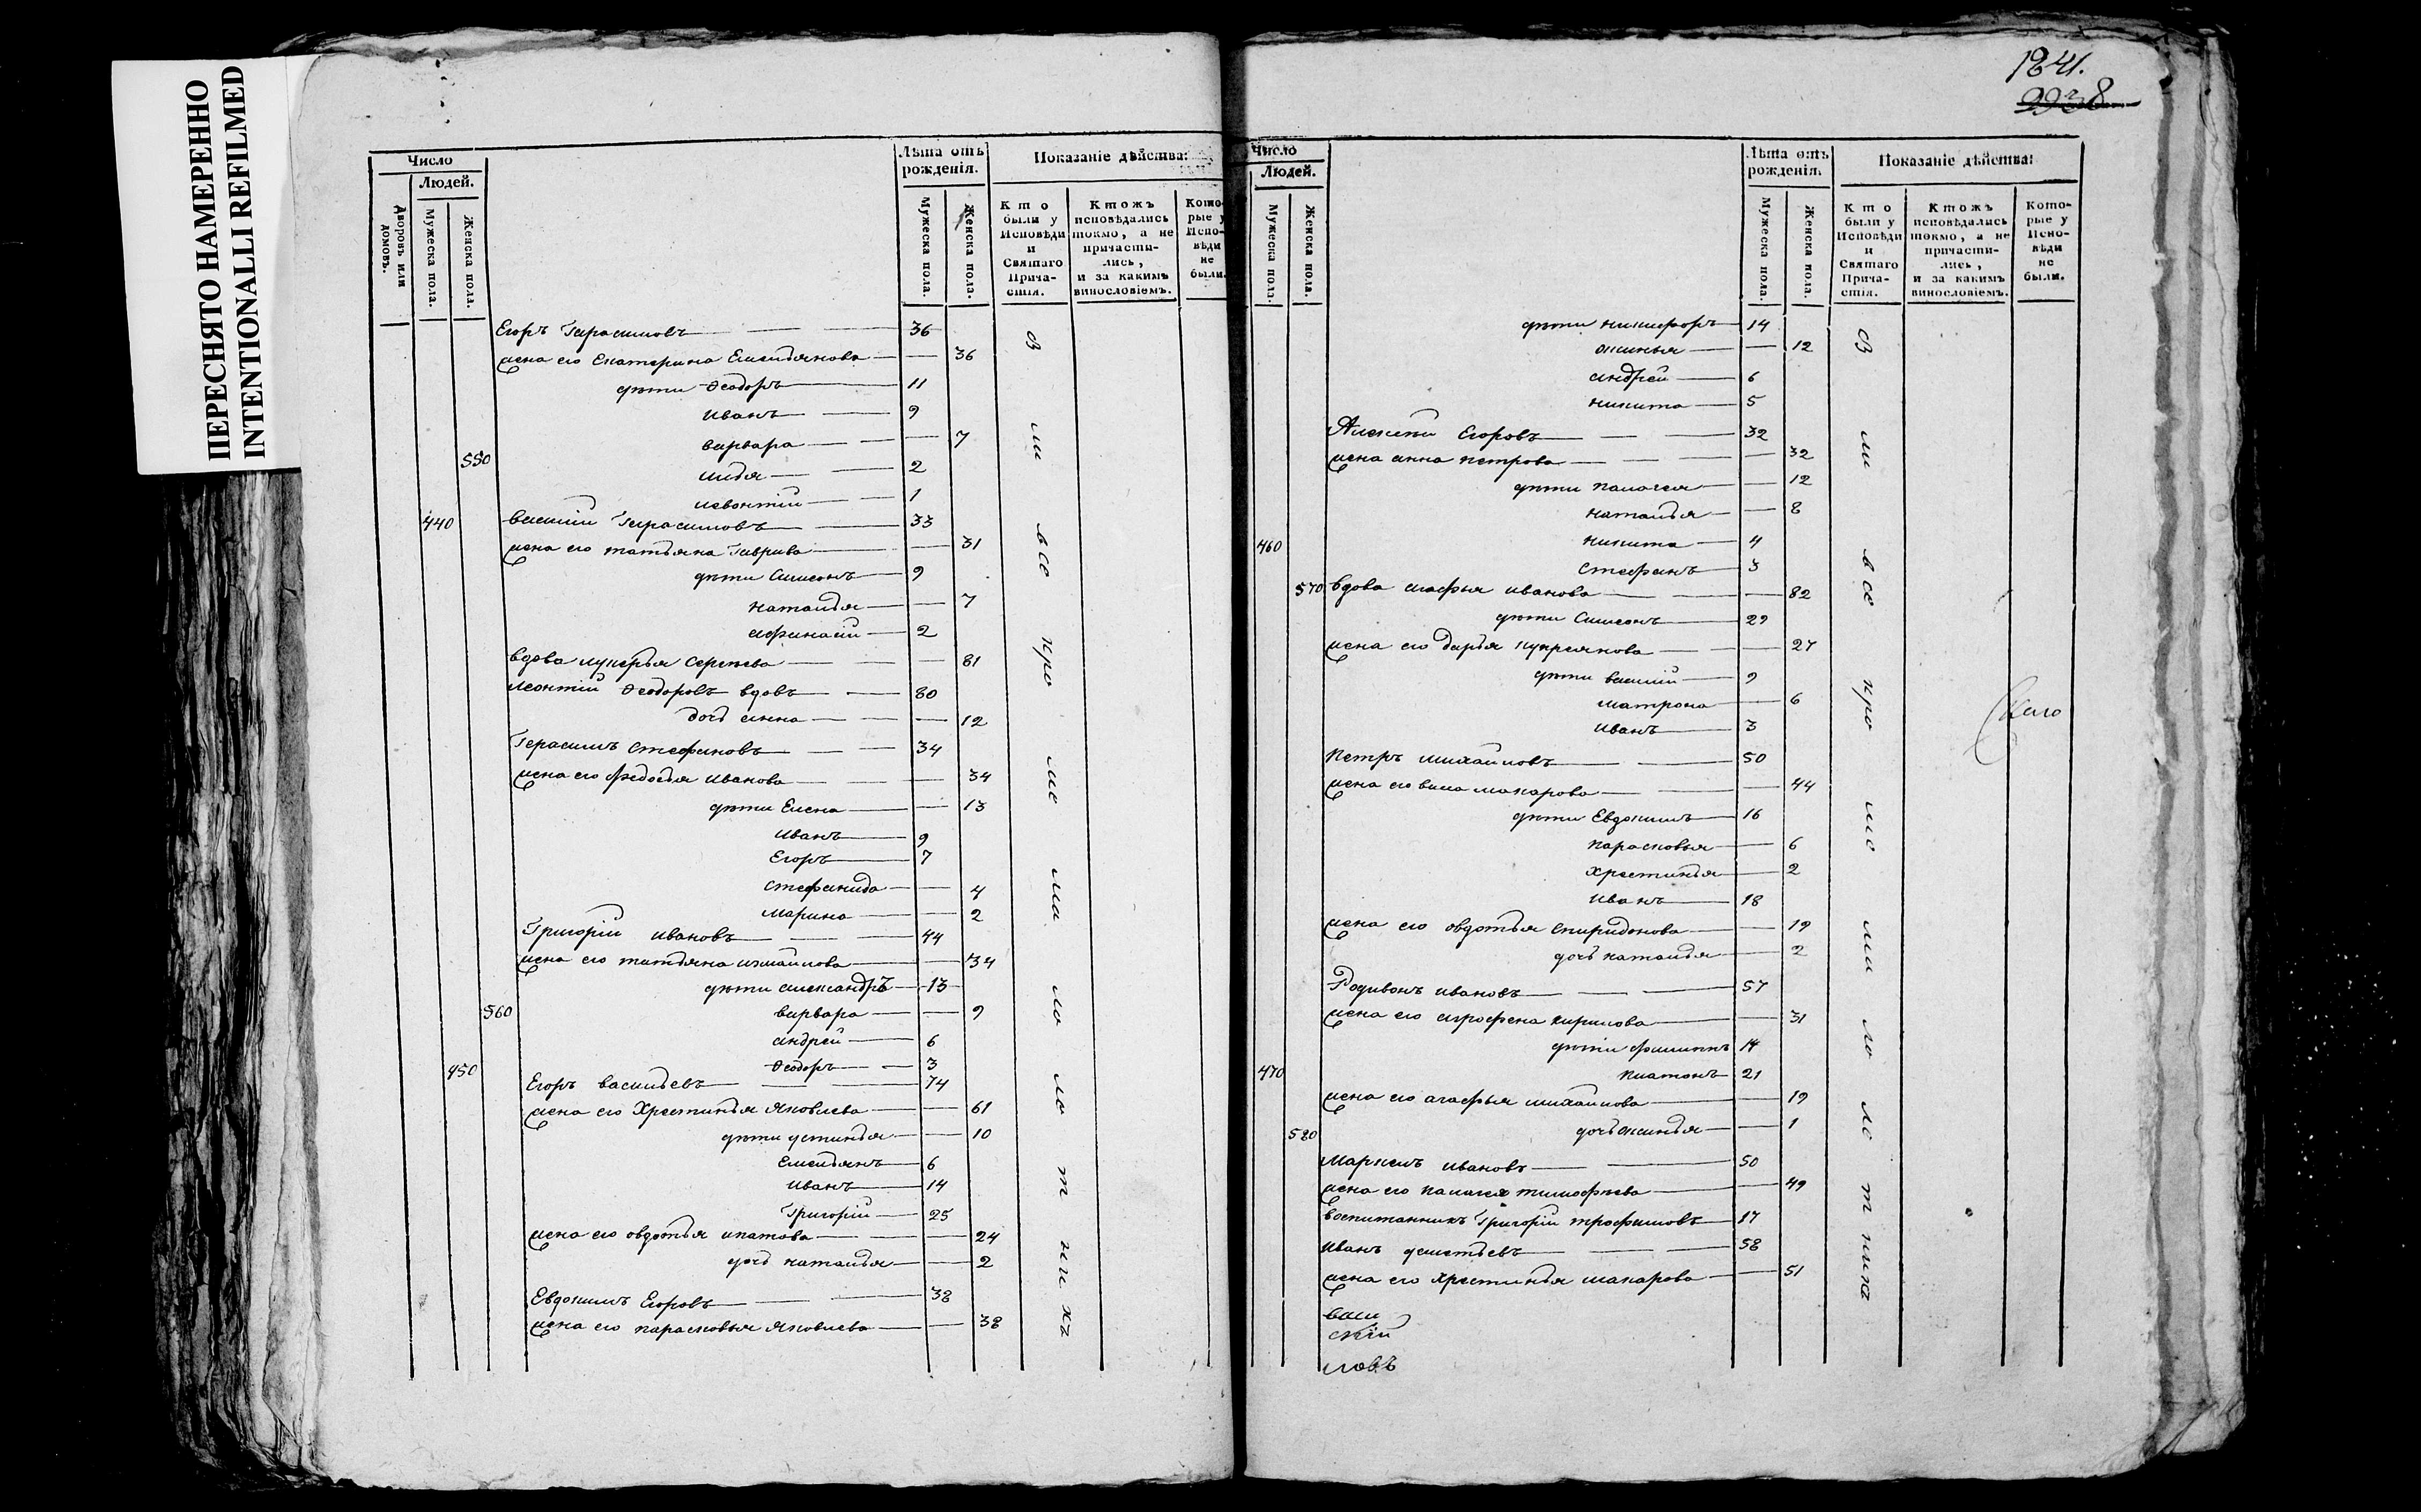 ПЕРЕСНЯТО НАМЕРЕННО
INTENTIONALLI REFILMED
Число
Людей.
Дворовъ или домовъ.
Мужеска пола.
Женска пола.
Лѣта отъ рожденія.
Мужеска пола.
Женска пола.
Показаніе дѣйства:
Кто были у Исповѣди и Святаго Прича-стія.
Ктожъ исповѣдались токмо, а не причасти-лись, и за какимъ винословіемъ.
Кото-рые у Испо-вѣди не были.
Егоръ Герасимовъ 36
жена его Екатерина Емельянова 36
дѣти Ѳеодоръ 11
Иванъ 9
варвара 7
550
2
левонтій 1
440 василій Герасимовъ 33
жена его татьяна 31
дѣти Симеонъ 9
наталья 7
афанасій 2
вдова лукерья Сергѣева 81
леонтій Ѳеодоровъ вдовъ 80
дочь анна 12
Герасимъ Стефановъ 34
жена его федосья Иванова 34
дѣти Елена 13
Иванъ 9
Егоръ 7
стефанида 4
марина 2
Григорій ивановъ 44
жена его татьяна измайлова 34
дѣти александръ 13
560 варвара 9
андрей 6
450 Ѳеодоръ 3
Егоръ васильевъ 74
жена его Хрестинья Яковлева 61
дѣти устинья 10
Емельянъ 6
Иванъ 14
Григорій 25
жена его овдотья ипатова 24
дочь наталья 2
Евдокимъ Егоровъ 38
жена его парасковья Яковлева 38
1841.
2938
Число
Людей.
Мужеска пола.
Женска пола.
Лѣта отъ рожденія.
Мужеска пола.
Женска пола.
Показаніе дѣйства:
Кто были у Исповѣди и Святаго Прича-стія.
Ктожъ исповѣдались токмо, а не причасти-лись, и за какимъ винословіемъ.
Кото-рые у Испо-вѣди не были.
дѣти никифоръ 14
акинья 12
андрей 6
никита 5
Алексѣй Егоровъ 32
жена анна петрова 32
дѣти палагея 12
наталья 8
460 никита 4
стефанъ 3
570 вдова агафья иванова 82
дѣти Симеонъ 29
жена его дарья купреянова 27
дѣти василій 9
матрона 6
иванъ 3
петръ михайловъ 50
жена его васа макарова 44
дѣти Евдокимъ 16
парасковья 6
хрестинья 2
иванъ 18
жена его овдотья спиридонова 19
дочь наталья 2
Родивонъ ивановъ 57
жена его агрофена кирилова 31
дѣти филиппъ 14
470 платонъ 21
жена его агафья михайлова 19
580 дочь акинья 1
маркелъ ивановъ 50
жена его палагея тимофѣева 49
воспитанникъ Григорій трофимовъ 17
иванъ 58
жена его хрестинья макарова 51
васи
скій
ловъ